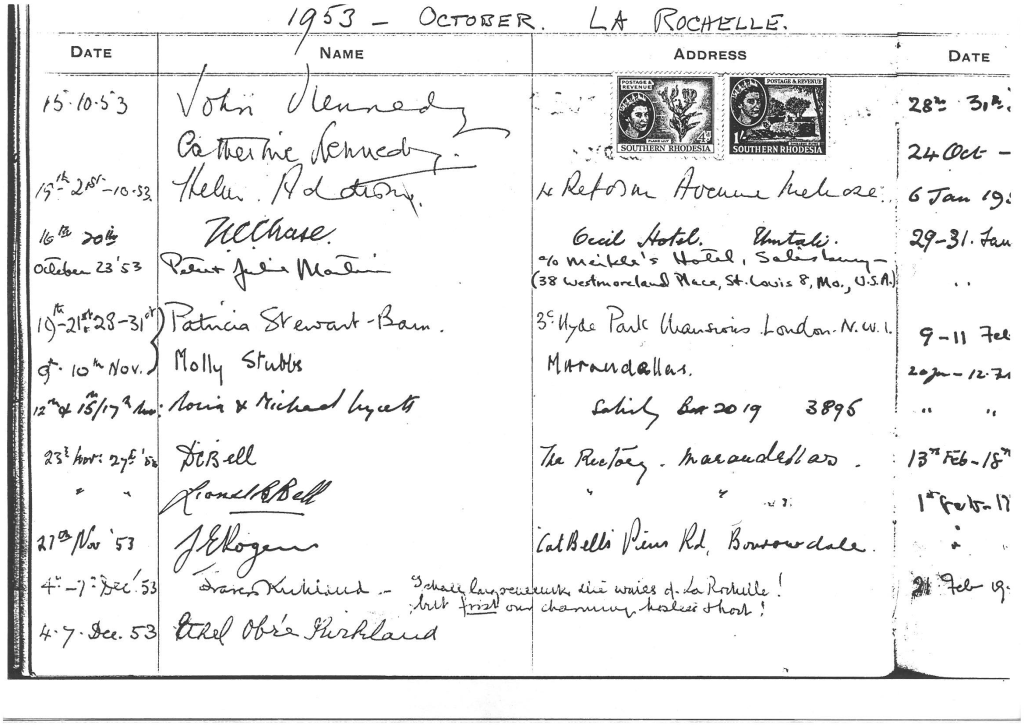 1953 — OCTOBER. LA ROCHELLE.
DATE NAME ADDRESS DATE
15.10.53 John Kennedy
Catherine Kennedy.
POSTAGE & REVENUE 4d SOUTHERN RHODESIA
POSTAGE & REVENUE 1/- SOUTHERN RHODESIA
28th 31st
24 Oct –
19th–21st–10.53. Helen Reform Avenue Melrose.
6 Jan 19
16th 20th Chase. Cecil Hotel. Umtali.
29–31. Jan
October 23 '53 Peter Julie Martin c/o Meikle's Hotel, Salisbury –
(38 Westmoreland Place, St. Louis 8, Mo., U.S.A.)
" "
19th–21st 28–31st Patricia Stewart-Bam. 3c Hyde Park Mansions London. N.W.1.
9–11 Feb
9th 10th Nov. Molly Stubbs Marandellas.
12th & 15/17th Nov: & Michael Lycett Box 2019 3896
" "
23rd Nov: 27th '53 Bell The Rectory. Marandellas.
13th Feb–18th
" " Lionel B Bell " "
1st Feb–17
27th Nov '53 J E Rogers Cat Bells Rd, Borrowdale.
"
4th–7th Dec '53 Kirkland – I shall long remember the of La Rochelle!
but first our charming hostess & host!
21 Feb 19
4.7. Dec. 53 Ethel Obre Kirkland